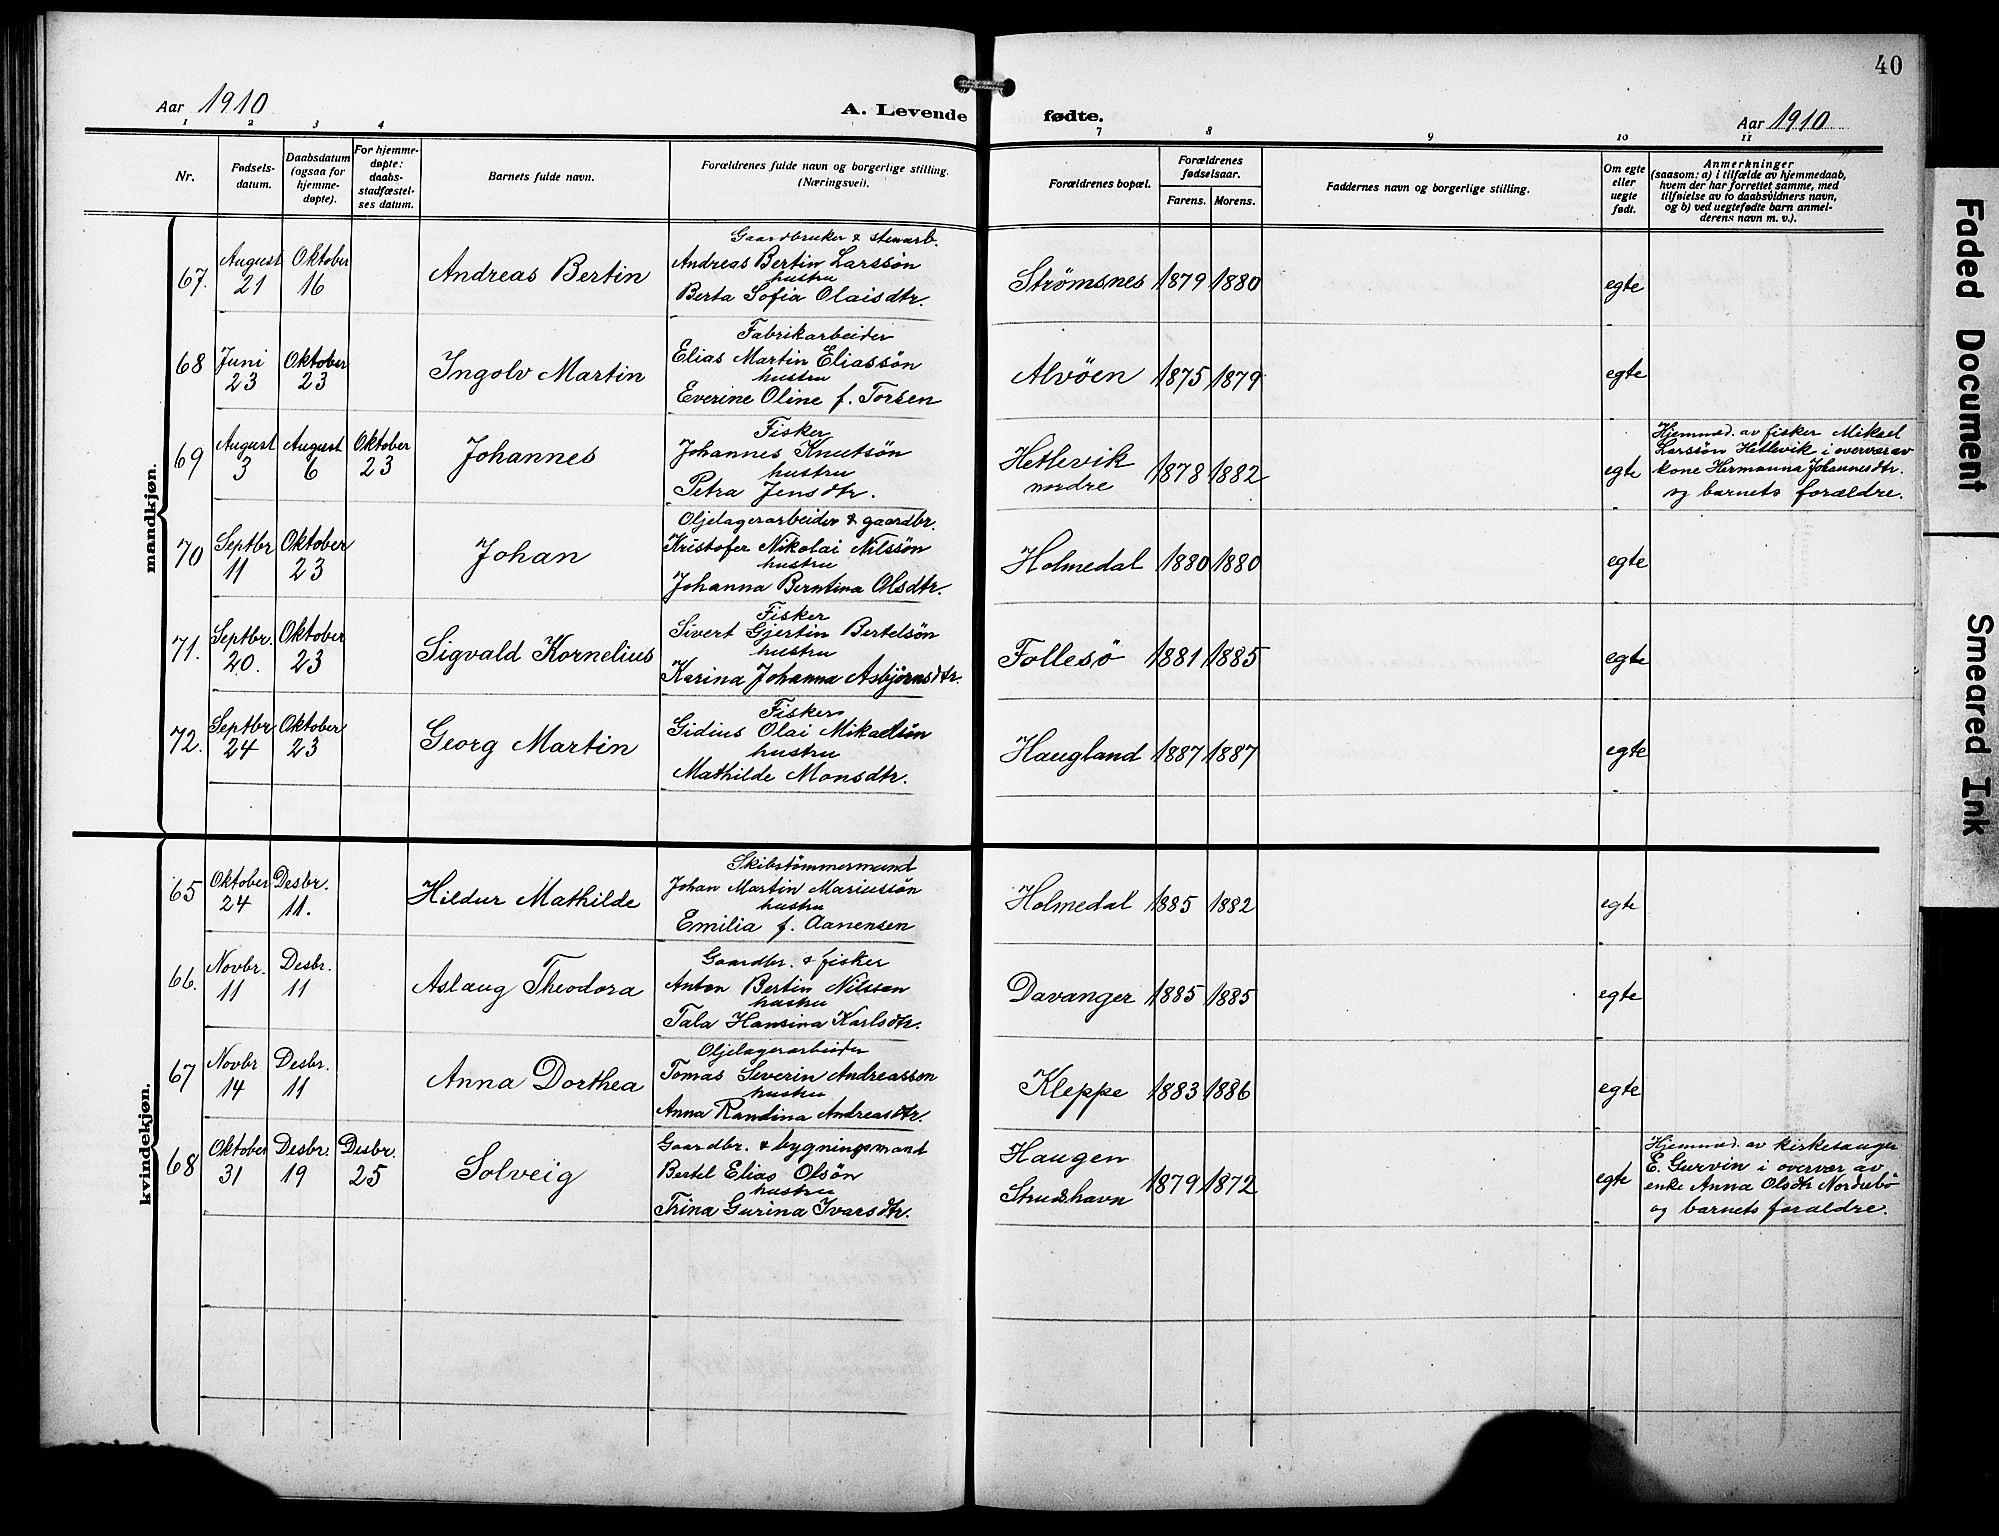 40
Aar 1910
A. Levende
fødte.
Aar 1910
1 2 3 4 7 8 9 10 11
Nr.
Fødsels-
datum.
Daabsdatum
(ogsaa for
hjemme-
døpte).
For hjemme-
døpte:
daabs-
stadfæstel-
ses datum.
Barnets fulde navn.
Forældrenes fulde navn og borgerlige stilling.
(Næringsvei).
Forældrenes bopæl.
Forældrenes
fødselsaar.
Farens. Morens.
Faddernes navn og borgerlige stilling.
Om egte
eller
uegte
født.
Anmerkninger
(saasom: a) i tilfælde av hjemmedaab,
hvem der har forrettet samme, med
tilføielse av to daabsvidners navn,
og b) ved uegtefødte barn anmel-
derens navn m. v.).
mandkjøn.
67.
August
21
Oktober
16
Andreas Bertin
Gaardbruker & stenarb.
Andreas Bertin Larssøn
hustru
Berta Sofia Olaisdtr.
Strømsnes 1879 1880 egte
68
Juni
23
Oktober
23
Ingolv Martin
Fabrikarbeider
Elias Martin Eliassøn
hustru
Everine Oline f. Torsen
Alvøen 1875 1879 egte
69
August
3
August
6
Oktober
23
Johannes
Fisker
Johannes Knutsøn
hustru
Petra Jensdtr.
Hetlevik
nordre
1878 1882 egte
Hjemmed. av fisker Mikael
Larssøn Hetlevik i overvær av
kone Hermanna Johannesdtr.
og barnets forældre.
70
Septbr
11
Oktober
23
Johan
Oljelagerarbeider & gaardbr.
Kristofer Nikolai Nilssøn
hustru
Johanna Berntina Olsdtr.
Holmedal 1880 1880 egte
71.
Septbr.
20.
Oktober
23
Sigvald Kornelius
Fisker
Sivert Gjertin Bertelsøn
hustru
Karina Johanna Asbjørnsdtr.
Follesö 1881 1885 egte
72.
Septbr
24
Oktober
23
Georg Martin
Fisker
Gidius Olai Mikaelsøn
hustru
Mathilde Monsdtr.
Haugland 1887 1887 egte
kvindekjøn.
65
Oktober
24
Desbr.
11.
Hildur Mathilde
Skibstømmermand
Johan Martin Mariussøn
hustru
Emilia f. Aanensen
Holmedal 1885 1882 egte
66.
Novbr.
11
Desbr.
11
Aslaug Theodora
Gaardbr. & fisker
Anton Bertin Nilssøn
hustru
Tala Hansina Karlsdtr.
Davanger 1885 1885 egte
67
Novbr
14
Desbr.
11
Anna Dorthea
Oljelagerarbeider
Tomas Severin Andreassøn
hustru
Anna Randina Andreasdtr.
Kleppe 1883 1886 egte
68
Oktober
31
Desbr.
19
Desbr.
25
Solveig
Gaardbr. & bygningsmand
Bertel Elias Olsøn
hustru
Trina Gurina Ivarsdtr.
Haugen
Strudshavn
1879 1872 egte
Hjemmed. av kirkesanger
E. Gurvin i overvær av
enke Anna Olsdtr Nordrebø
og barnets forældre.
Faded Document
Smeared Ink